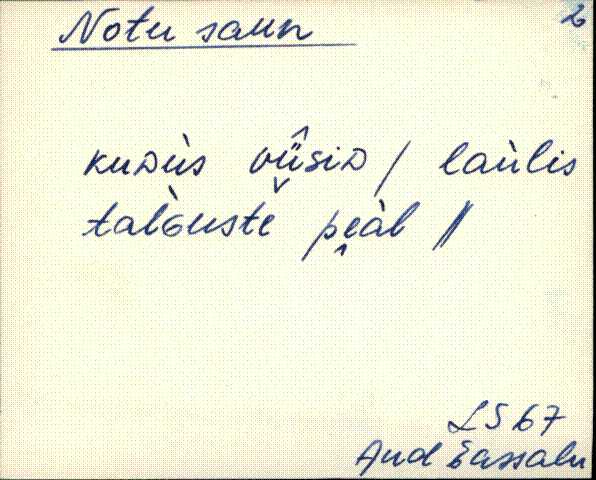 Notu saun
2
kuᴅùs vǖ̂siᴅ / laùlis
talɢ̀uste pḙàl //
LS 67
Aud Sassalu